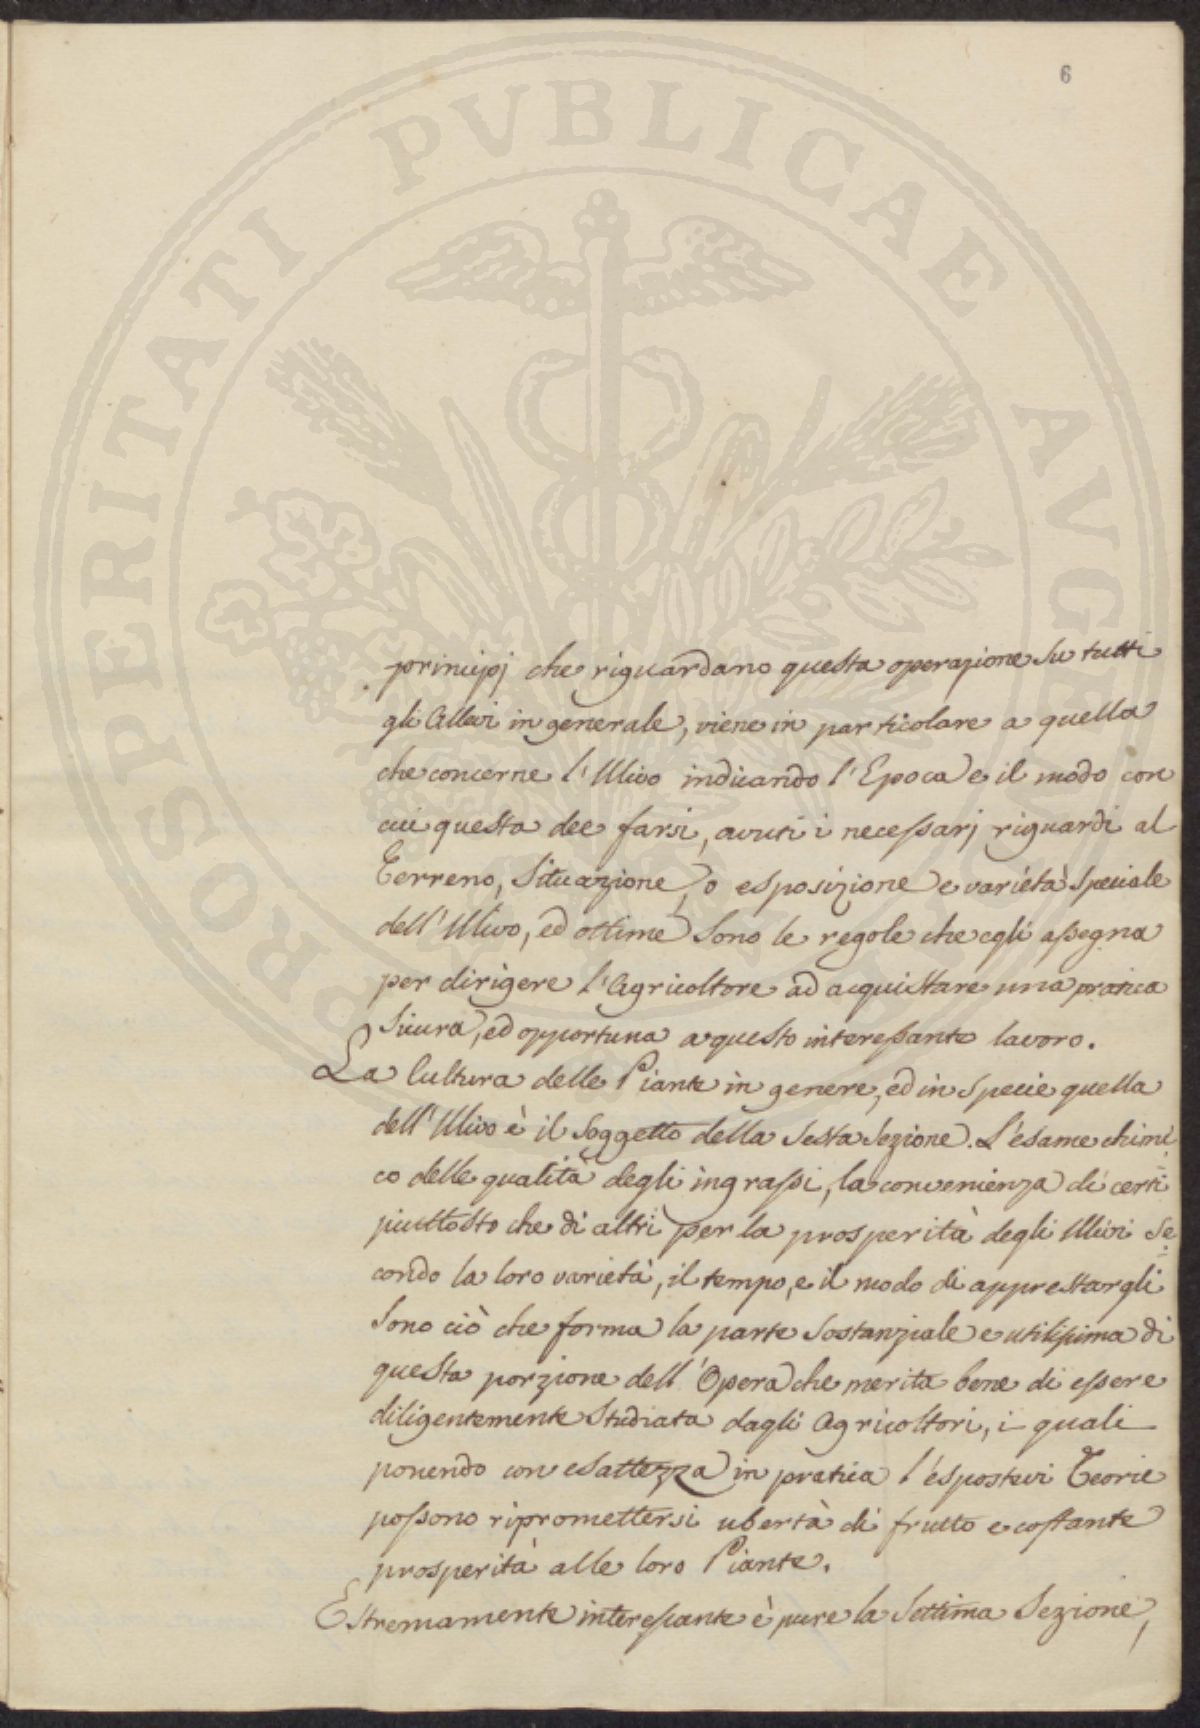 6
PROSPERITATI PUBLICAE AUGENDAE
principj che riguardano questa operazione su tutti
gli Allievi in generale, viene in particolare a quella
che concerne l'Ulivo indicando l'Epoca e il modo con
cui questa dee farsi, avuti i necessarj riguardi al
Terreno, situazione, o esposizione e varietà speciale
dell'Ulivo, ed ottime sono le regole che egli assegna
per dirigere l'Agricoltore ad acquistare una pratica
sicura, ed opportuna a questo interessante lavoro.
La Cultura delle Piante in genere, ed in specie quella
dell'Ulivo è il soggetto della sesta sezione. L'esame chimi
co delle qualità degli ingrassi, la convenienza di certi
piuttosto che di altri per la prosperità degli Ulivi se
condo la loro varietà, il tempo, e il modo di apprestargli
sono ciò che forma la parte sostanziale e utilissima di
questa porzione dell'Opera che merita bene di essere
diligentemente studiata dagli Agricoltori, i quali
ponendo con esattezza in pratica l'espostevi Teorie
possono ripromettersi ubertà di frutto e costante
prosperità alle loro Piante.
Estremamente interessante è pure la settima sezione,